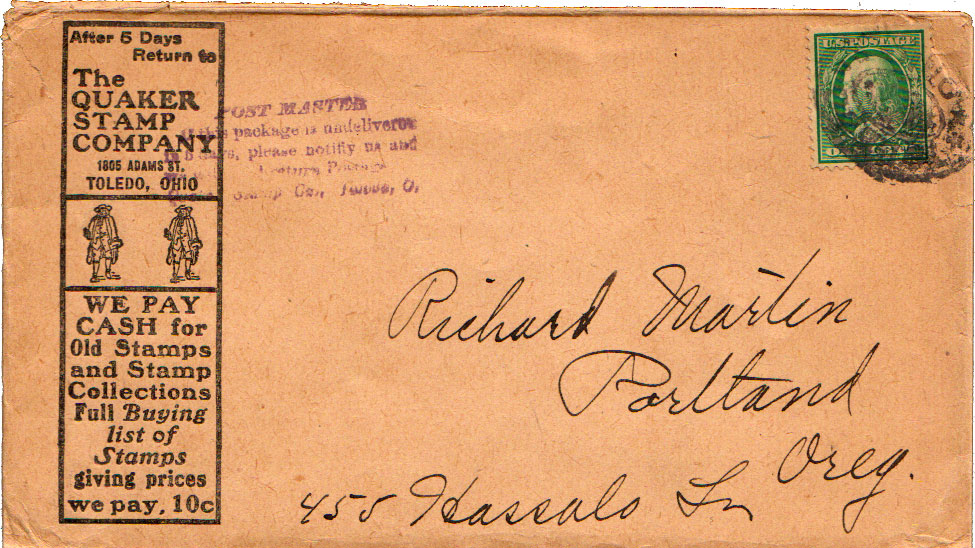 After 5 Days
Return to
The
QUAKER
STAMP
COMPANY
1805 ADAMS ST.
TOLEDO, OHIO
WE PAY
CASH for
Old Stamps
and Stamp
Collections
Full Buying
list of
Stamps
giving prices
we pay, 10c
POST MASTER
If this package is undelivered
in 5 days, please notify us and
Return Postage
Stamp Co., O.
U.S. POSTAGE
Richard Martin
Portland
Oreg.
455 Hassalo